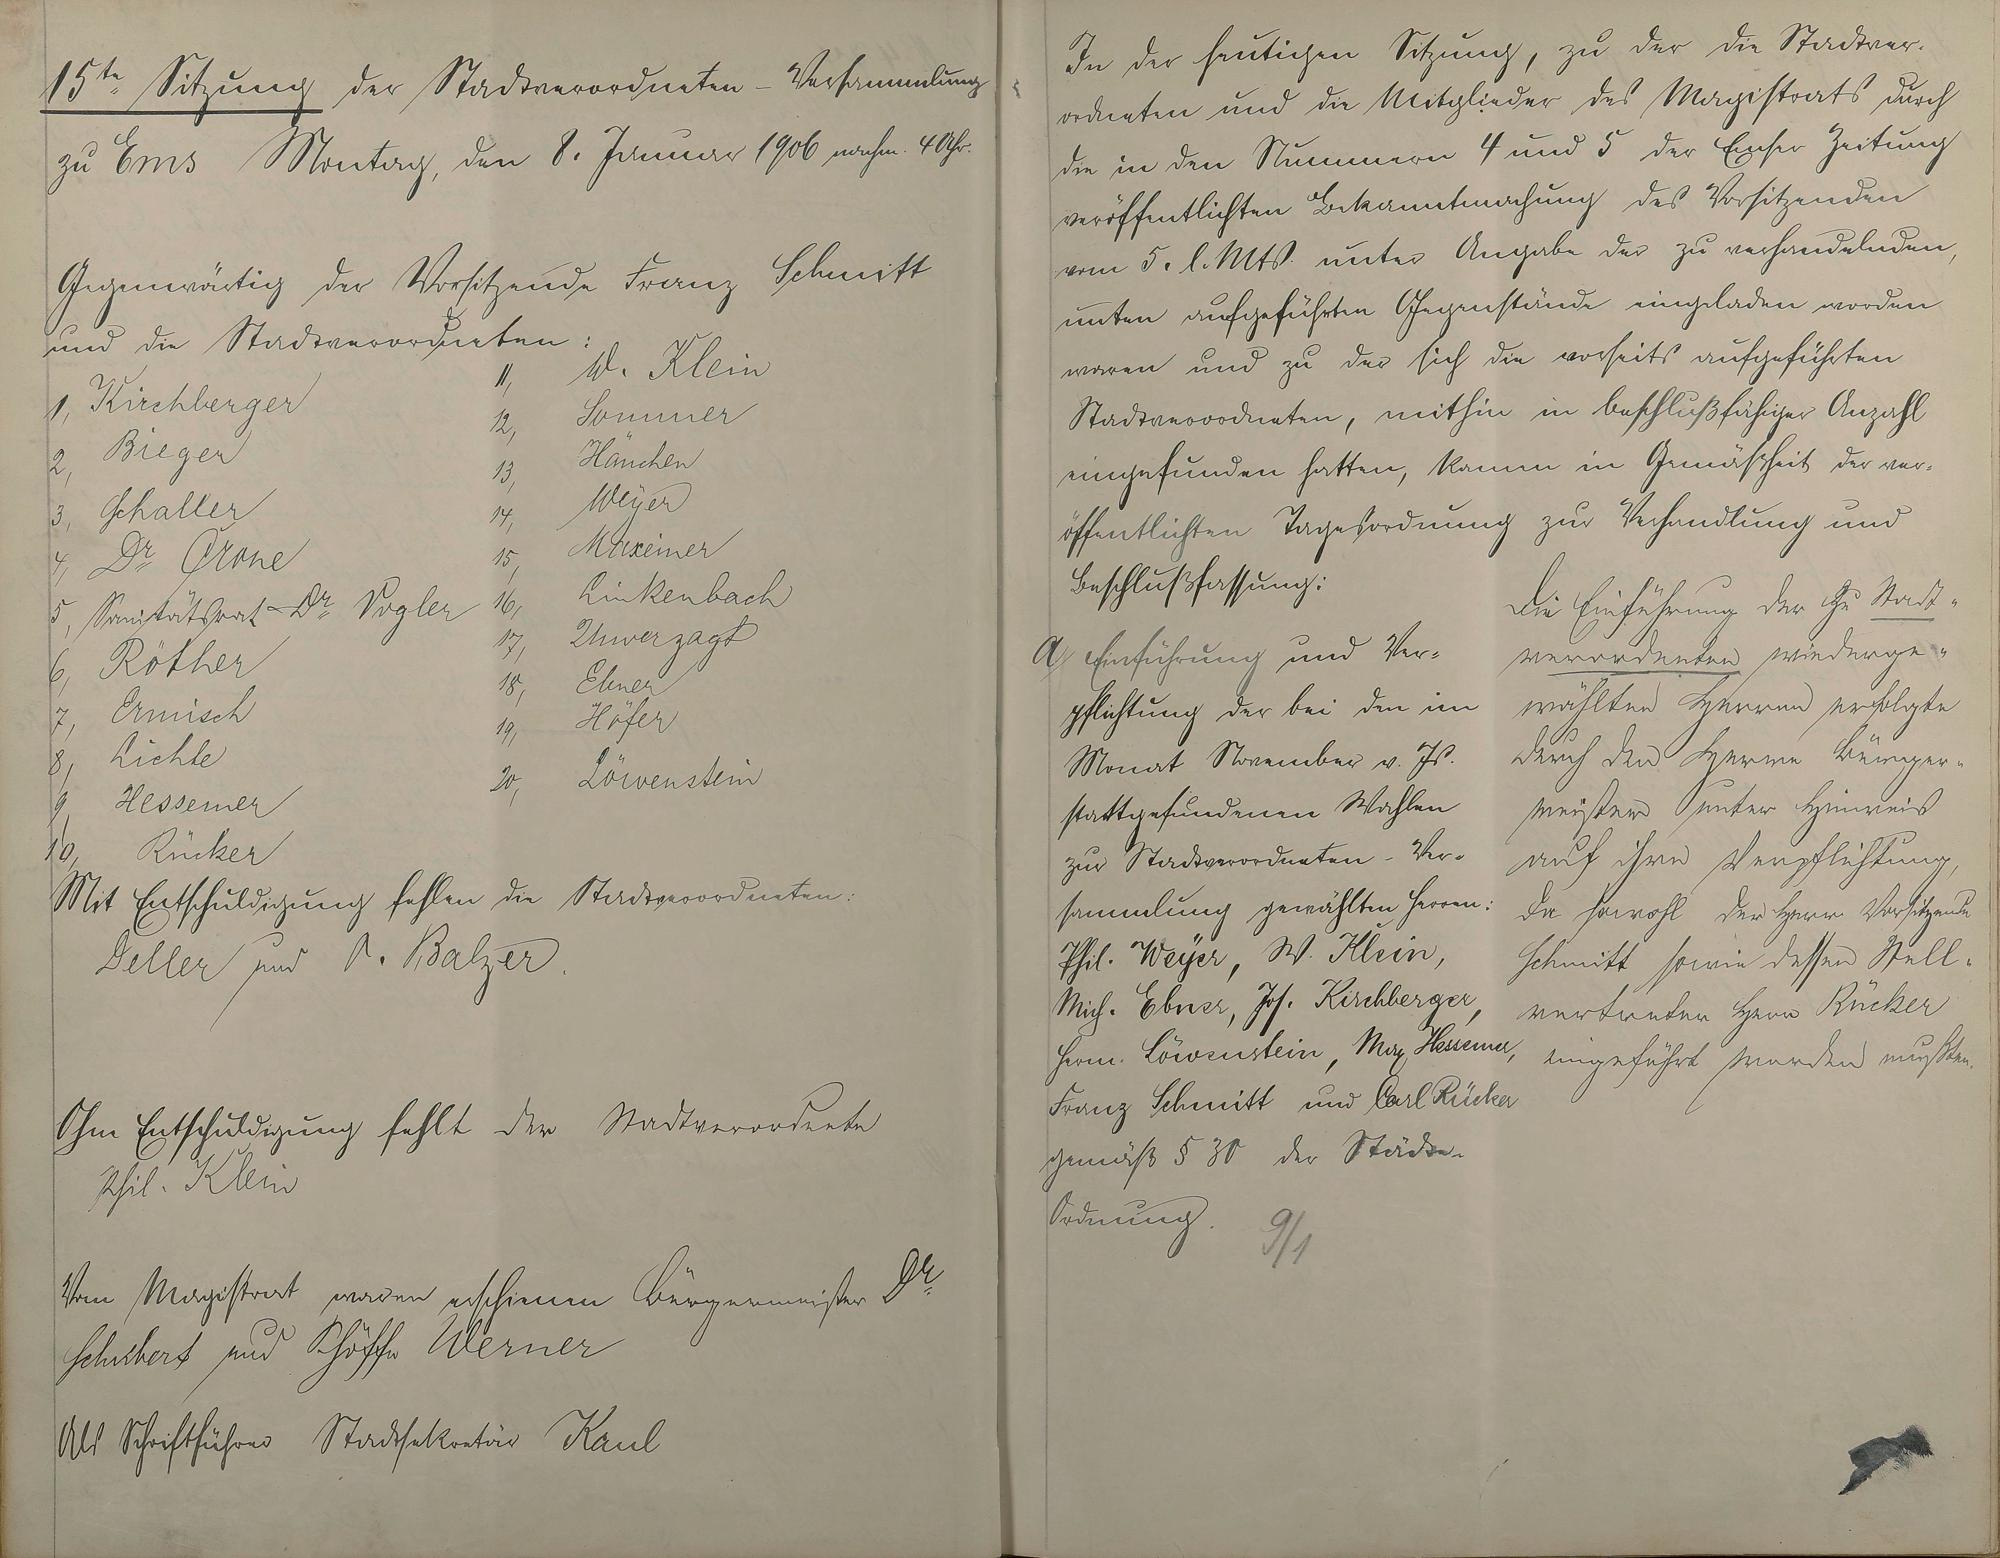 15te Sitzung der Stadtverordneten-Versammlung
zu Ems Montag, den 8. Januar 1906 nachm. 4 Uhr.
Gegenwärtig der Vorsitzende Franz Schmitt
und die Stadtverordneten:
1, Kirchberger
2, Bieger
3, Schaller
4, Dr Crone
5, Sanitätsrat Dr Vogler
6, Röther
7, Ermisch
8, Lichte
9, Hessemer
10, Rücker
11, W. Klein
12, Sommer
13, Hänchen
14, Weyer
15, Maxeiner
16, Linkenbach
17, Unverzagt
18, Ebner
19, Höfer
20, Löwenstein
Mit Entschuldigung fehlen die Stadtverordneten:
Deller und A. Balzer.
Ohne Entschuldigung fehlt der Stadtverordnete
Phil. Klein
Vom Magistrat waren erschienen Bürgermeister Dr
Schubert und Schöffe Werner
Als Schriftführer Stadtsekretär Kaul
In der heutigen Sitzung, zu der die Stadtver-
ordneten und die Mitglieder des Magistrats durch
die in den Nummern 4 und 5 der Emser Zeitung
veröffentlichten Bekanntmachung des Vorsitzenden
vom 5. l. Mts. unter Angabe der zu verhandelnden,
unten aufgeführten Gegenstände eingeladen worden
waren und zu der sich die vorseits aufgeführten
Stadtverordneten, mithin in beschlußfähiger Anzahl
eingefunden hatten, kamen in Gemäßheit der ver-
öffentlichten Tagesordnung zur Verhandlung und
Beschlußfassung:
a) Einführung und Ver-
pflichtung der bei den im
Monat November v. Js.
stattgefundenen Wahlen
zur Stadtverordneten-Ver-
sammlung gewählten Herren:
Phil. Weyer, W. Klein,
Mich. Ebner, Jos. Kirchberger,
Herm. Löwenstein, Max Hessemer,
Franz Schmitt und Carl Rücker
gemäß § 30 der Städte-
Ordnung.
9/1
Die Einführung der zu Stadt-
verordneten wiederge-
wählten Herren erfolgte
durch den Herrn Bürger-
meister unter Hinweis
auf ihre Verpflichtung,
da sowohl der Herr Vorsitzende
Schmitt sowie dessen Stell-
vertreter Herr Rücker
eingeführt werden mußten.